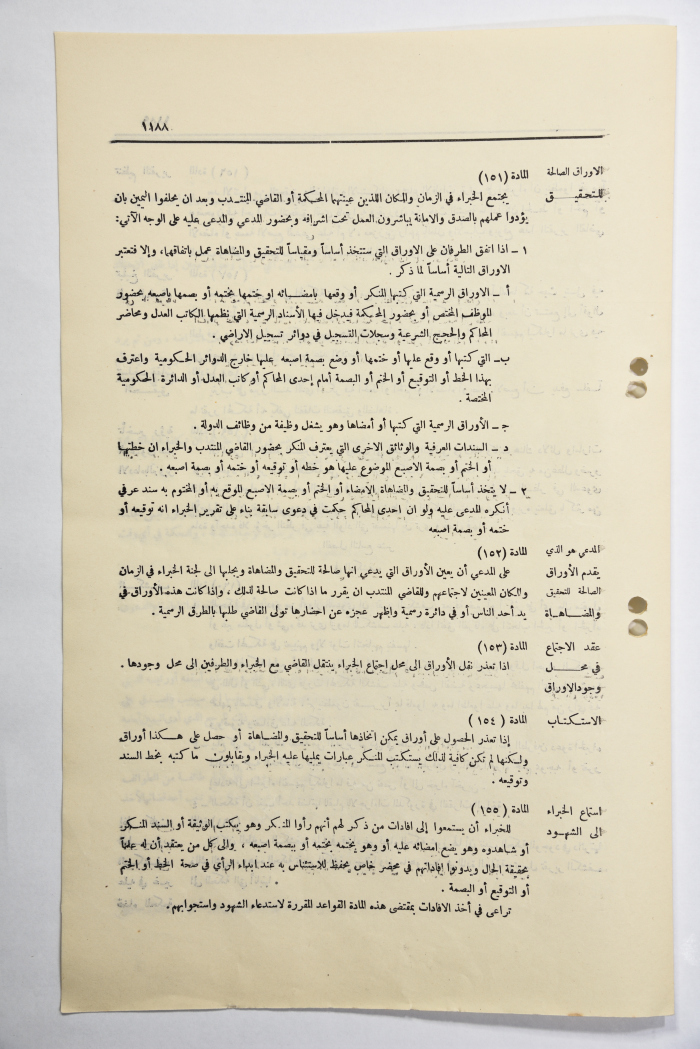 ١١٨٨
الاوراق الصالحة
للتحقيق
المادة (١٥١)
يجتمع الخبراء في الزمان والمكان اللذين عينتهما المحكمة أو القاضي المنتدب وبعد ان يحلفوا اليمين بان
يؤدوا عملهم بالصدق والامانة يباشرون العمل تحت اشرافه وبحضور المدعي والمدعى عليه على الوجه الآتي:
١ ــ اذا اتفق الطرفان على الاوراق التي ستتخذ أساساً ومقياساً للتحقيق والمضاهاة عمل باتفاقهما، وإلا فتعتبر
الاوراق التالية أساساً لما ذكر .
أ ــ الاوراق الرسمية التي كتبها المنكر أو وقعها بامضائه او ختمها بختمه أو بصمها باصبعه بحضور
الموظف المختص أو بحضور المحكمة فيدخل فيها الأسناد الرسمية التي نظمها الكاتب العدل ومحاضر
المحاكم والحجج الشرعية وسجلات التسجيل في دوائر تسجيل الاراضي .
ب ــ التي كتبها أو وقع عليها أو ختمها أو وضع بصمة اصبعه عليها خارج الدوائر الحكومية واعترف
بهذا الخط أو التوقيع أو الختم أو البصمة أمام إحدى المحاكم أو كاتب العدل أو الدائرة الحكومية
المختصة .
جـ ــ الأوراق الرسمية التي كتبها أو أمضاها وهو يشغل وظيفة من وظائف الدولة .
د ــ السندات العرفية والوثائق الاخرى التي يعترف المنكر بحضور القاضي المنتدب والخبراء ان خطها
أو الختم أو بصمة الاصبع الموضوع عليها هو خطه أو توقيعه أو ختمه أو بصمة اصبعه .
٢ ــ لا يتخذ أساساً للتحقيق والمضاهاة الامضاء أو الختم أو بصمة الاصبع الموقع به أو المختوم به سند عرفي
أنكره المدعى عليه ولو ان احدى المحاكم حكمت في دعوى سابقة بناء على تقرير الخبراء انه توقيعه أو
ختمه أو بصمة اصبعه
المدعي هو الذي
يقدم الأوراق
الصالحة للتحقيق
والمضاهاة
المادة (١٥٢)
على المدعي أن يعين الأوراق التي يدعي انها صالحة للتحقيق والمضاهاة ويجلبها الى لجنة الخبراء في الزمان
والمكان المعينين لاجتماعهم وللقاضي المنتدب ان يقرر ما اذا كانت صالحة لذلك ، واذا كانت هذه الأوراق في
يد أحد الناس أو في دائرة رسمية واظهر عجزه عن احضارها تولى القاضي طلبها بالطرق الرسمية .
عقد الاجتماع
في محل
وجود الاوراق
المادة (١٥٣)
اذا تعذر نقل الأوراق الى محل اجتماع الخبراء ينتقل القاضي مع الخبراء والطرفين الى محل وجودها .
الاستكتاب
المادة ( ١٥٤ )
إذا تعذر الحصول على أوراق يمكن اتخاذها أساساً للتحقيق والمضاهاة أو حصل على هكذا أوراق
ولكنها لم تكن كافية لذلك يستكتب المنكر عبارات يمليها عليه الخبراء ويقابلون ما كتبه بخط السند
وتوقيعه .
استماع الخبراء
الى الشهود
المادة ( ١٥٥ )
للخبراء أن يستمعوا إلى افادات من ذكر لهم أنهم رأوا المنكر وهو يكتب الوثيقة أو السند المنكر
أو شاهدوه وهو يضع امضائه عليه أو وهو يختمه بختمه أو ببصمة اصبعه ، والى كل من يعتقد أن له علماً
بحقيقة الحال ويدونوا إفاداتهم في محضر خاص يحفظ للاستئناس به عند ابداء الرأي في صحة الخط أو الختم
أو التوقيع أو البصمة .
تراعى في أخذ الافادات بمقتضى هذه المادة القواعد المقررة لاستدعاء الشهود واستجوابهم .